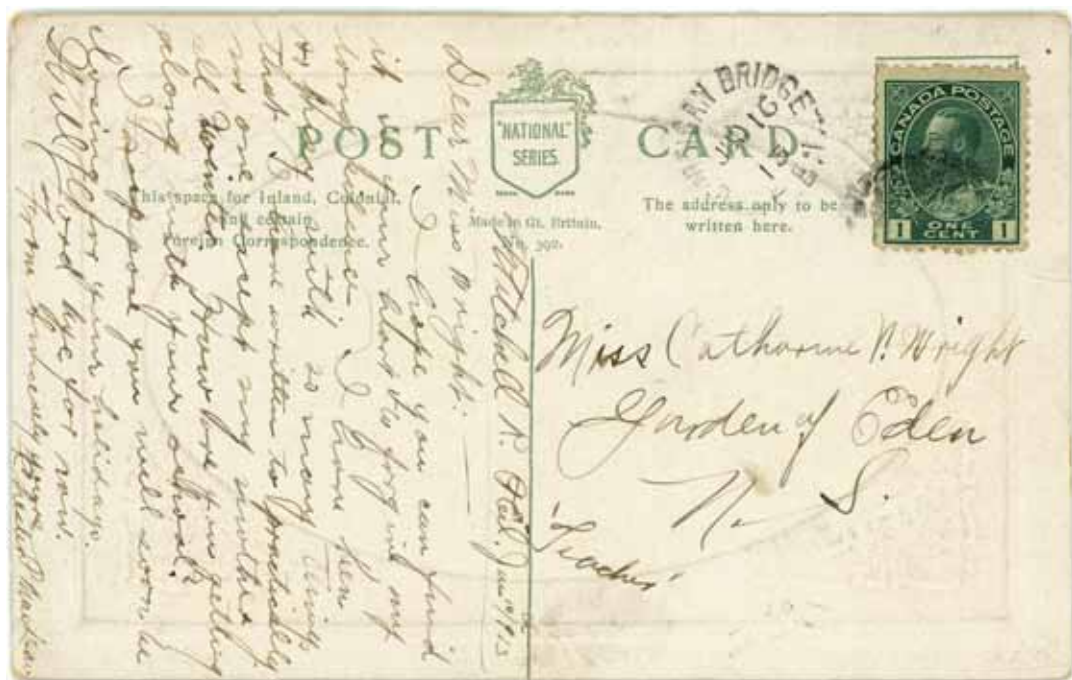 POST CARD
"NATIONAL"
SERIES.
This space for Inland, Colonial,
and certain
Foreign Correspondence.
Made in Gt. Britain.
No. 392.
The address only to be
written here.
BRIDGE
CANADA POSTAGE
1 ONE CENT 1
Miss Catharine Wright
Garden of Eden
N. S.
'Teacher'
Dear Miss Wright:
I hope you can find
it in your heart to forgive my
long silence. I have been
so busy with so many things
that I have written to practically
no one except my mother
all winter. How are you getting
along with your school?
I suppose you will soon be
having your holidays.
Will good bye for now.